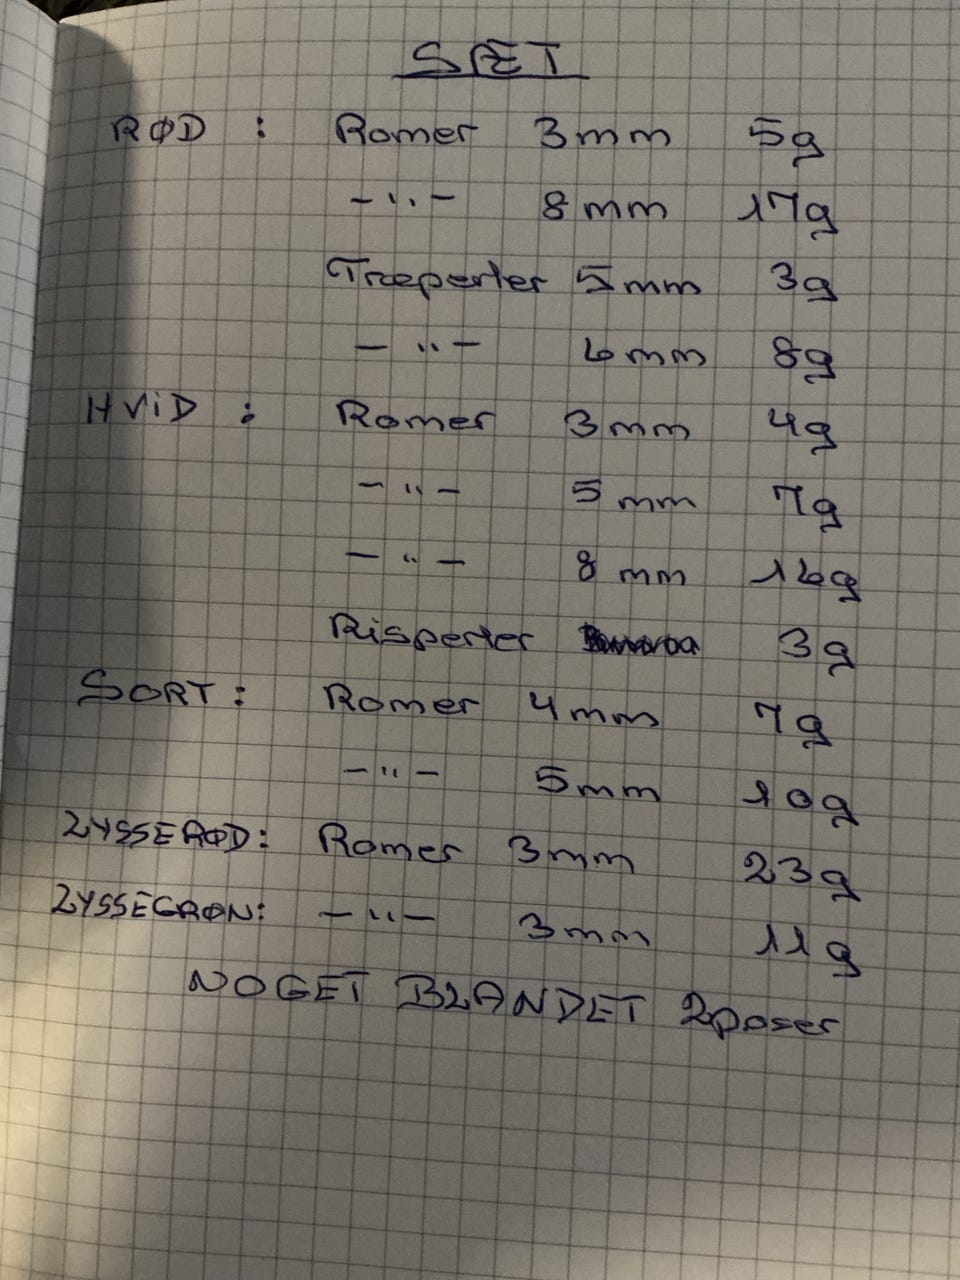 SPET
RØD : Romer 3mm 5g
-〃- 8mm 17g
Træperler 5mm 3g
-〃- 6mm 8g
HViD : Romer 3mm 4g
-〃- 5mm 7g
-〃- 8mm 16g
Risperler 3g
SORT: Romer 4mm 7g
-〃- 5mm 10g
LYSSERØD: Romer 3mm 23g
LYSSEGRØN: -〃- 3mm 11g
NOGET BLANDET 2poser